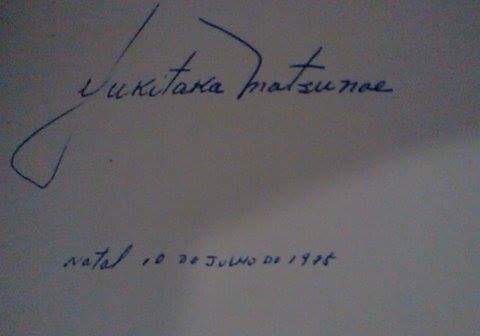 Yukitaka Matsunae
Natal 10 de julho de